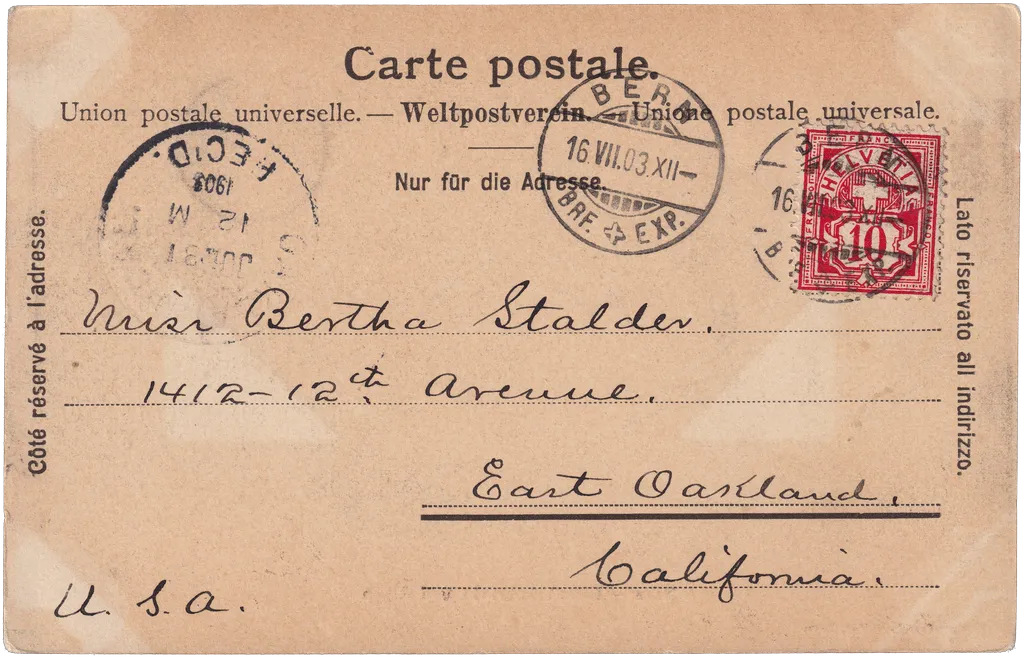 Carte postale.
Union postale universelle. — Weltpostverein. — Unione postale universale.
Nur für die Adresse.
BERN
16.VII.03.XII–
BRF. EXP.
REC'D.
1903
12 M
JUL 31
HELVETIA
10
16.VII
Côté réservé à l'adresse.
Lato riservato all indirizzo.
Miss Bertha Stalder.
1412–12th Avenue.
East Oakland.
California.
U. S. A.